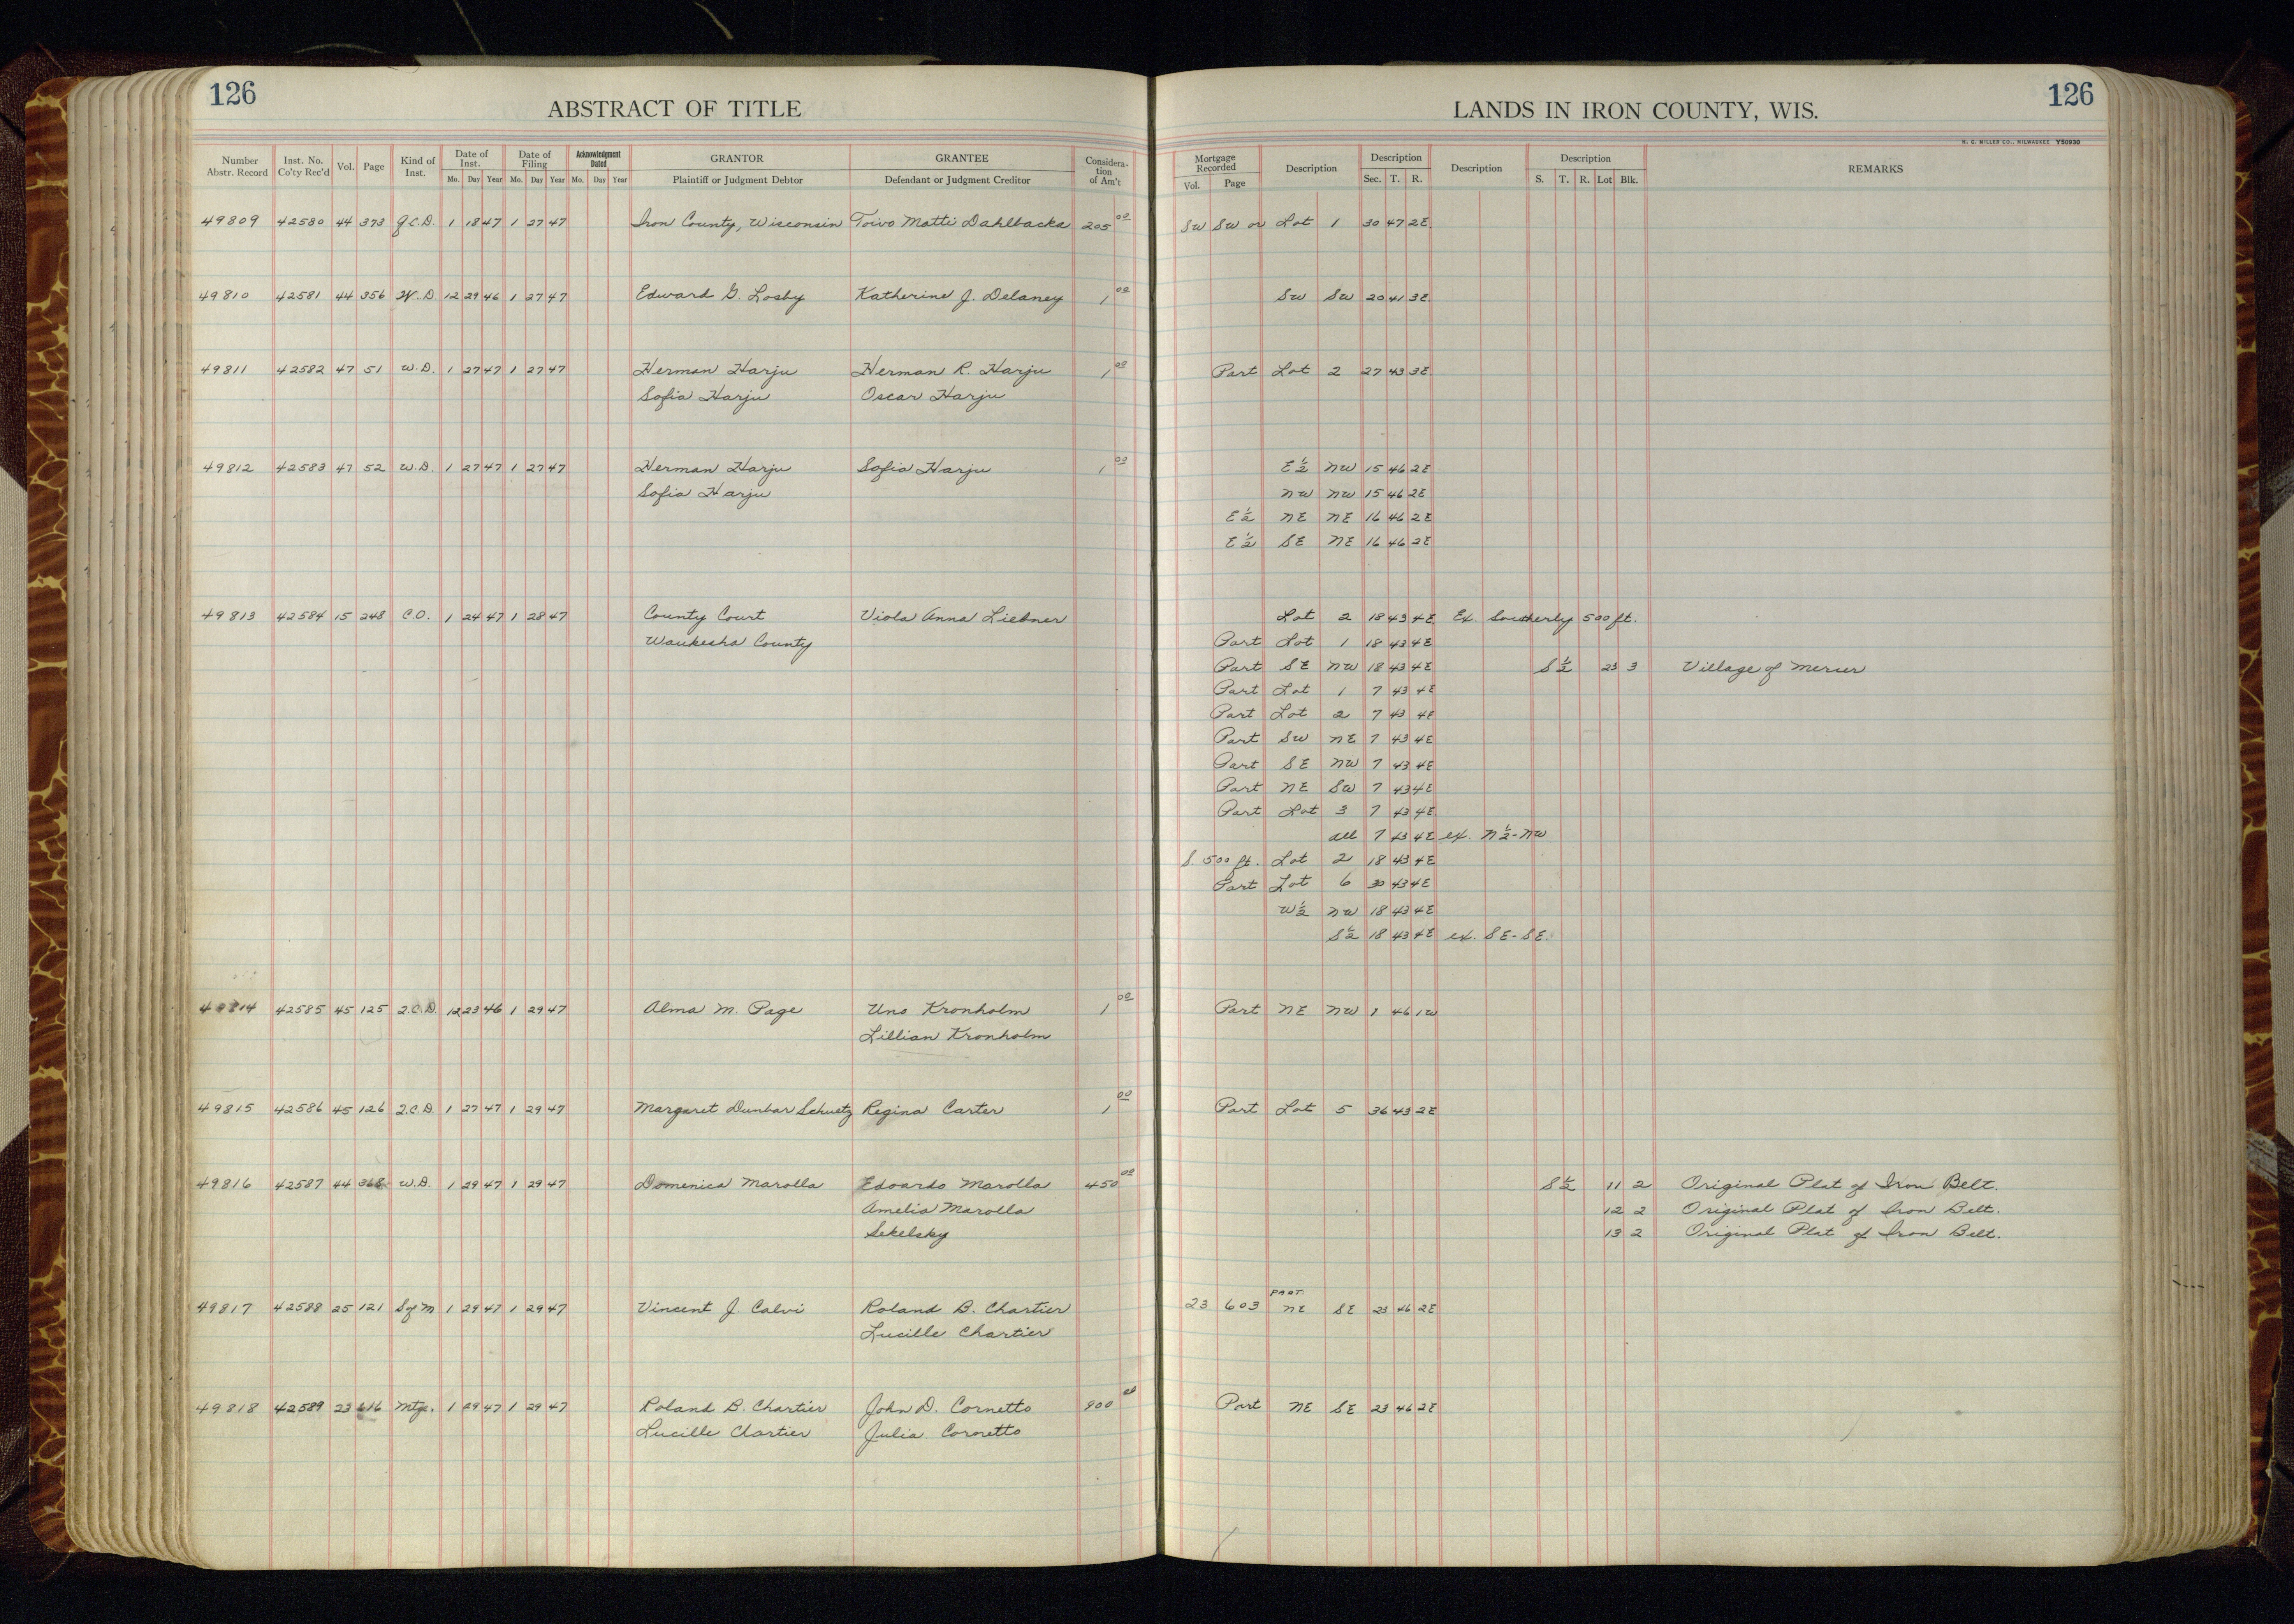 126
ABSTRACT OF TITLE
LANDS IN IRON COUNTY, WIS.
126
H. C. MILLER CO., MILWAUKEE Y50930
Number Abstr. Record Inst. No. Co'ty Rec'd Vol. Page Kind of Inst. Date of Inst. Mo. Day Year Date of Filing Mo. Day Year Acknowledgment Dated Mo. Day Year GRANTOR Plaintiff or Judgment Debtor GRANTEE Defendant or Judgment Creditor Consideration of Am't Mortgage Recorded Vol. Page Description Description Sec. T. R. Description Description S. T. R. Lot Blk. REMARKS
49809 42580 44 373 Q.C.D. 1 18 47 1 27 47 Iron County, Wisconsin Toivo Matti Dahlbacka 205 00 SW SW or Lot 1 30 47 2E
49810 42581 44 356 W.D. 12 29 46 1 27 47 Edward G. Losby Katherine J. Delaney 1 00 SW SW 20 41 3E
49811 42582 47 51 W.D. 1 27 47 1 27 47 Herman Harju Herman R. Harju 1 00 Part Lot 2 27 43 3E
Sofia Harju Oscar Harju
49812 42583 47 52 W.D. 1 27 47 1 27 47 Herman Harju Sofia Harju 1 00 E½ NW 15 46 2E
Sofia Harju NW NW 15 46 2E
E½ NE NE 16 46 2E
E½ SE NE 16 46 2E
49813 42584 15 248 C.O. 1 24 47 1 28 47 County Court Viola Anna Liebner Lot 2 18 43 4E Ex. Southerly 500 ft.
Waukesha County Part Lot 1 18 43 4E
Part SE NW 18 43 4E S½ 23 3 Village of Mercer
Part Lot 1 7 43 4E
Part Lot 2 7 43 4E
Part SW NE 7 43 4E
Part SE NW 7 43 4E
Part NE SW 7 43 4E
Part Lot 3 7 43 4E
all 7 43 4E ex. N½-NW
S. 500 ft. Lot 2 18 43 4E
Part Lot 6 30 43 4E
W½ NW 18 43 4E
S½ 18 43 4E ex. SE-SE.
49814 42585 45 125 Q.C.D. 12 23 46 1 29 47 Alma M. Page Uno Kronholm 1 00 Part NE NW 1 46 1W
Lillian Kronholm
49815 42586 45 126 Q.C.D. 1 27 47 1 29 47 Margaret Dunbar Schuetz Regina Carter 1 00 Part Lot 5 36 43 2E
49816 42587 44 368 W.D. 1 29 47 1 29 47 Domenica Marolla Edoardo Marolla 450 00 S½ 11 2 Original Plat of Iron Belt.
Amelia Marolla 12 2 Original Plat of Iron Belt.
Sekelsky 13 2 Original Plat of Iron Belt.
49817 42588 25 121 S of M 1 29 47 1 29 47 Vincent J. Calvi Roland B. Chartier 23 603 PART NE SE 23 46 2E
Lucille Chartier
49818 42589 23 616 Mtge. 1 29 47 1 29 47 Roland B. Chartier John D. Cornetto 900 00 Part NE SE 23 46 2E
Lucille Chartier Julia Cornetto